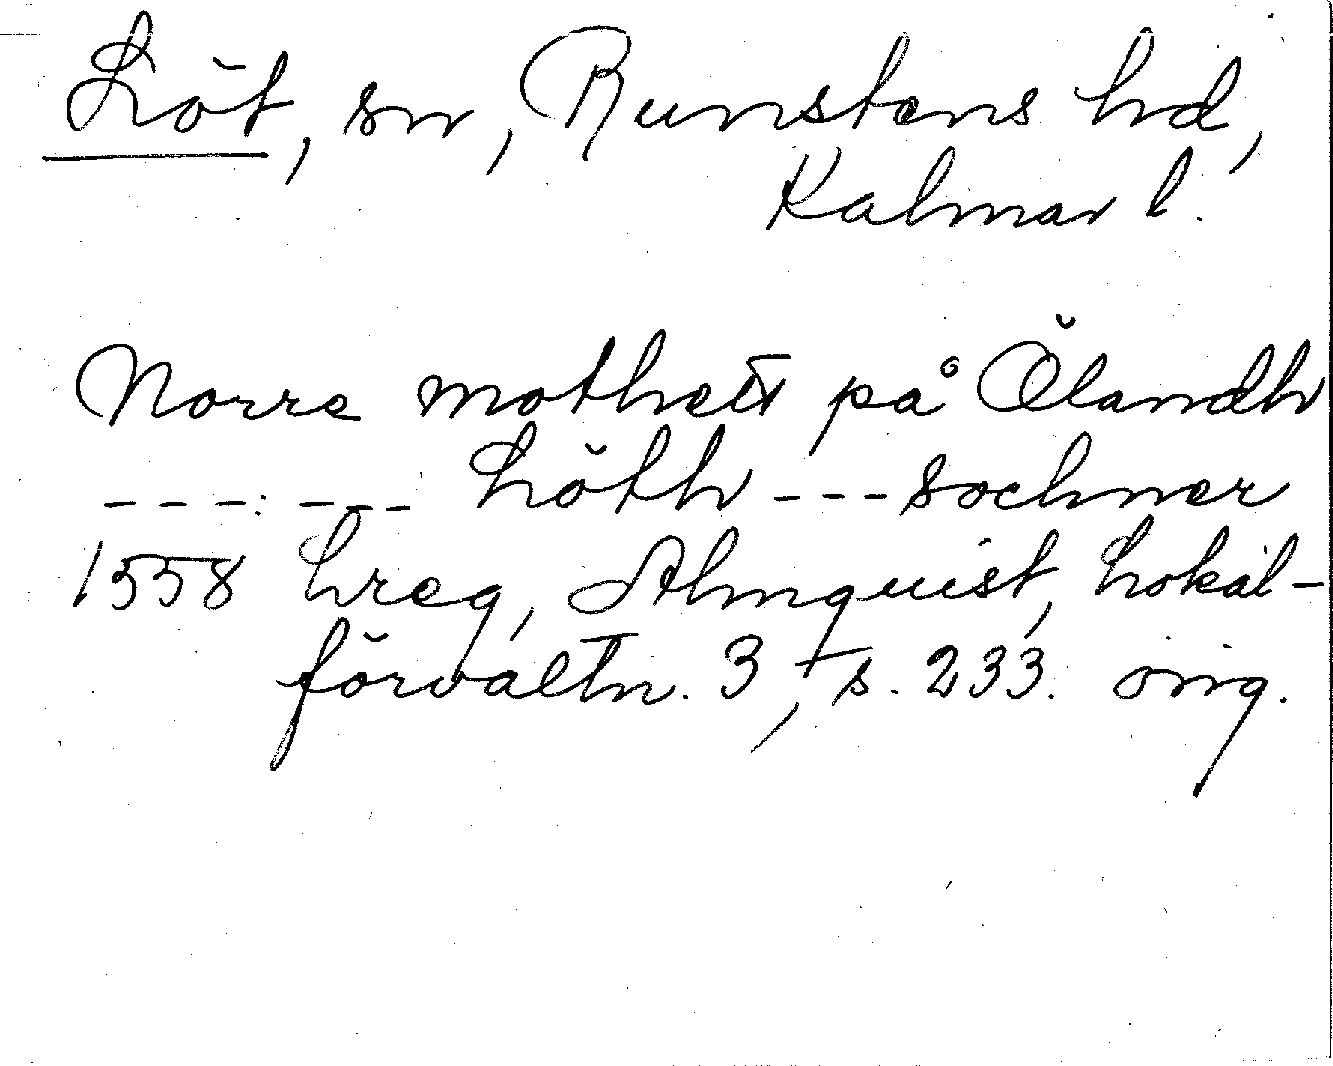 Löt, sn, Runstens hd,
Kalmar l.
Norre mothett på Ölandh
- - - - : - - - - Löth - - - sochner
1558 Lreg, Almquist, Lokal-
förvaltn. 3, s. 233. orig.